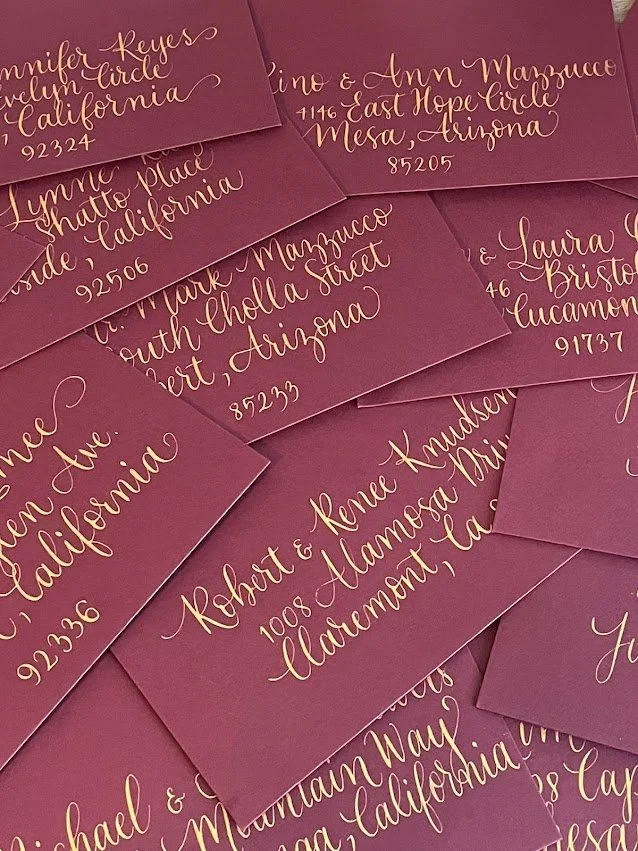 nnifer Reyes
velyn Circle
, California
92324
ino & Ann Mazzucco
4146 East Hope Circle
Mesa, Arizona
85205
Lynne
Shatto Place
side, California
92506
r. Mark Mazzucco
outh Cholla Street
bert, Arizona
85233
& Laura
46 Bristo
Cucamon
91737
mee
een Ave.
, California
92336
Robert & Renee Knudsen
1008 Alamosa Driv
Claremont, Ca
Ji
ichael &
Mountain Way
ga, California
28 Cap
esa